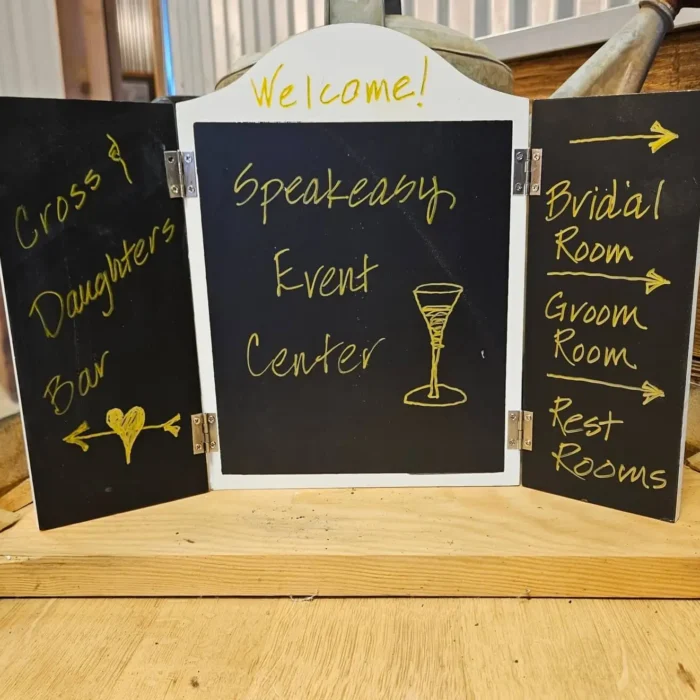 Welcome!
Cross &
Daughters
Bar
Speakeasy
Event
Center
Bridal
Room
Groom
Room
Rest
Rooms